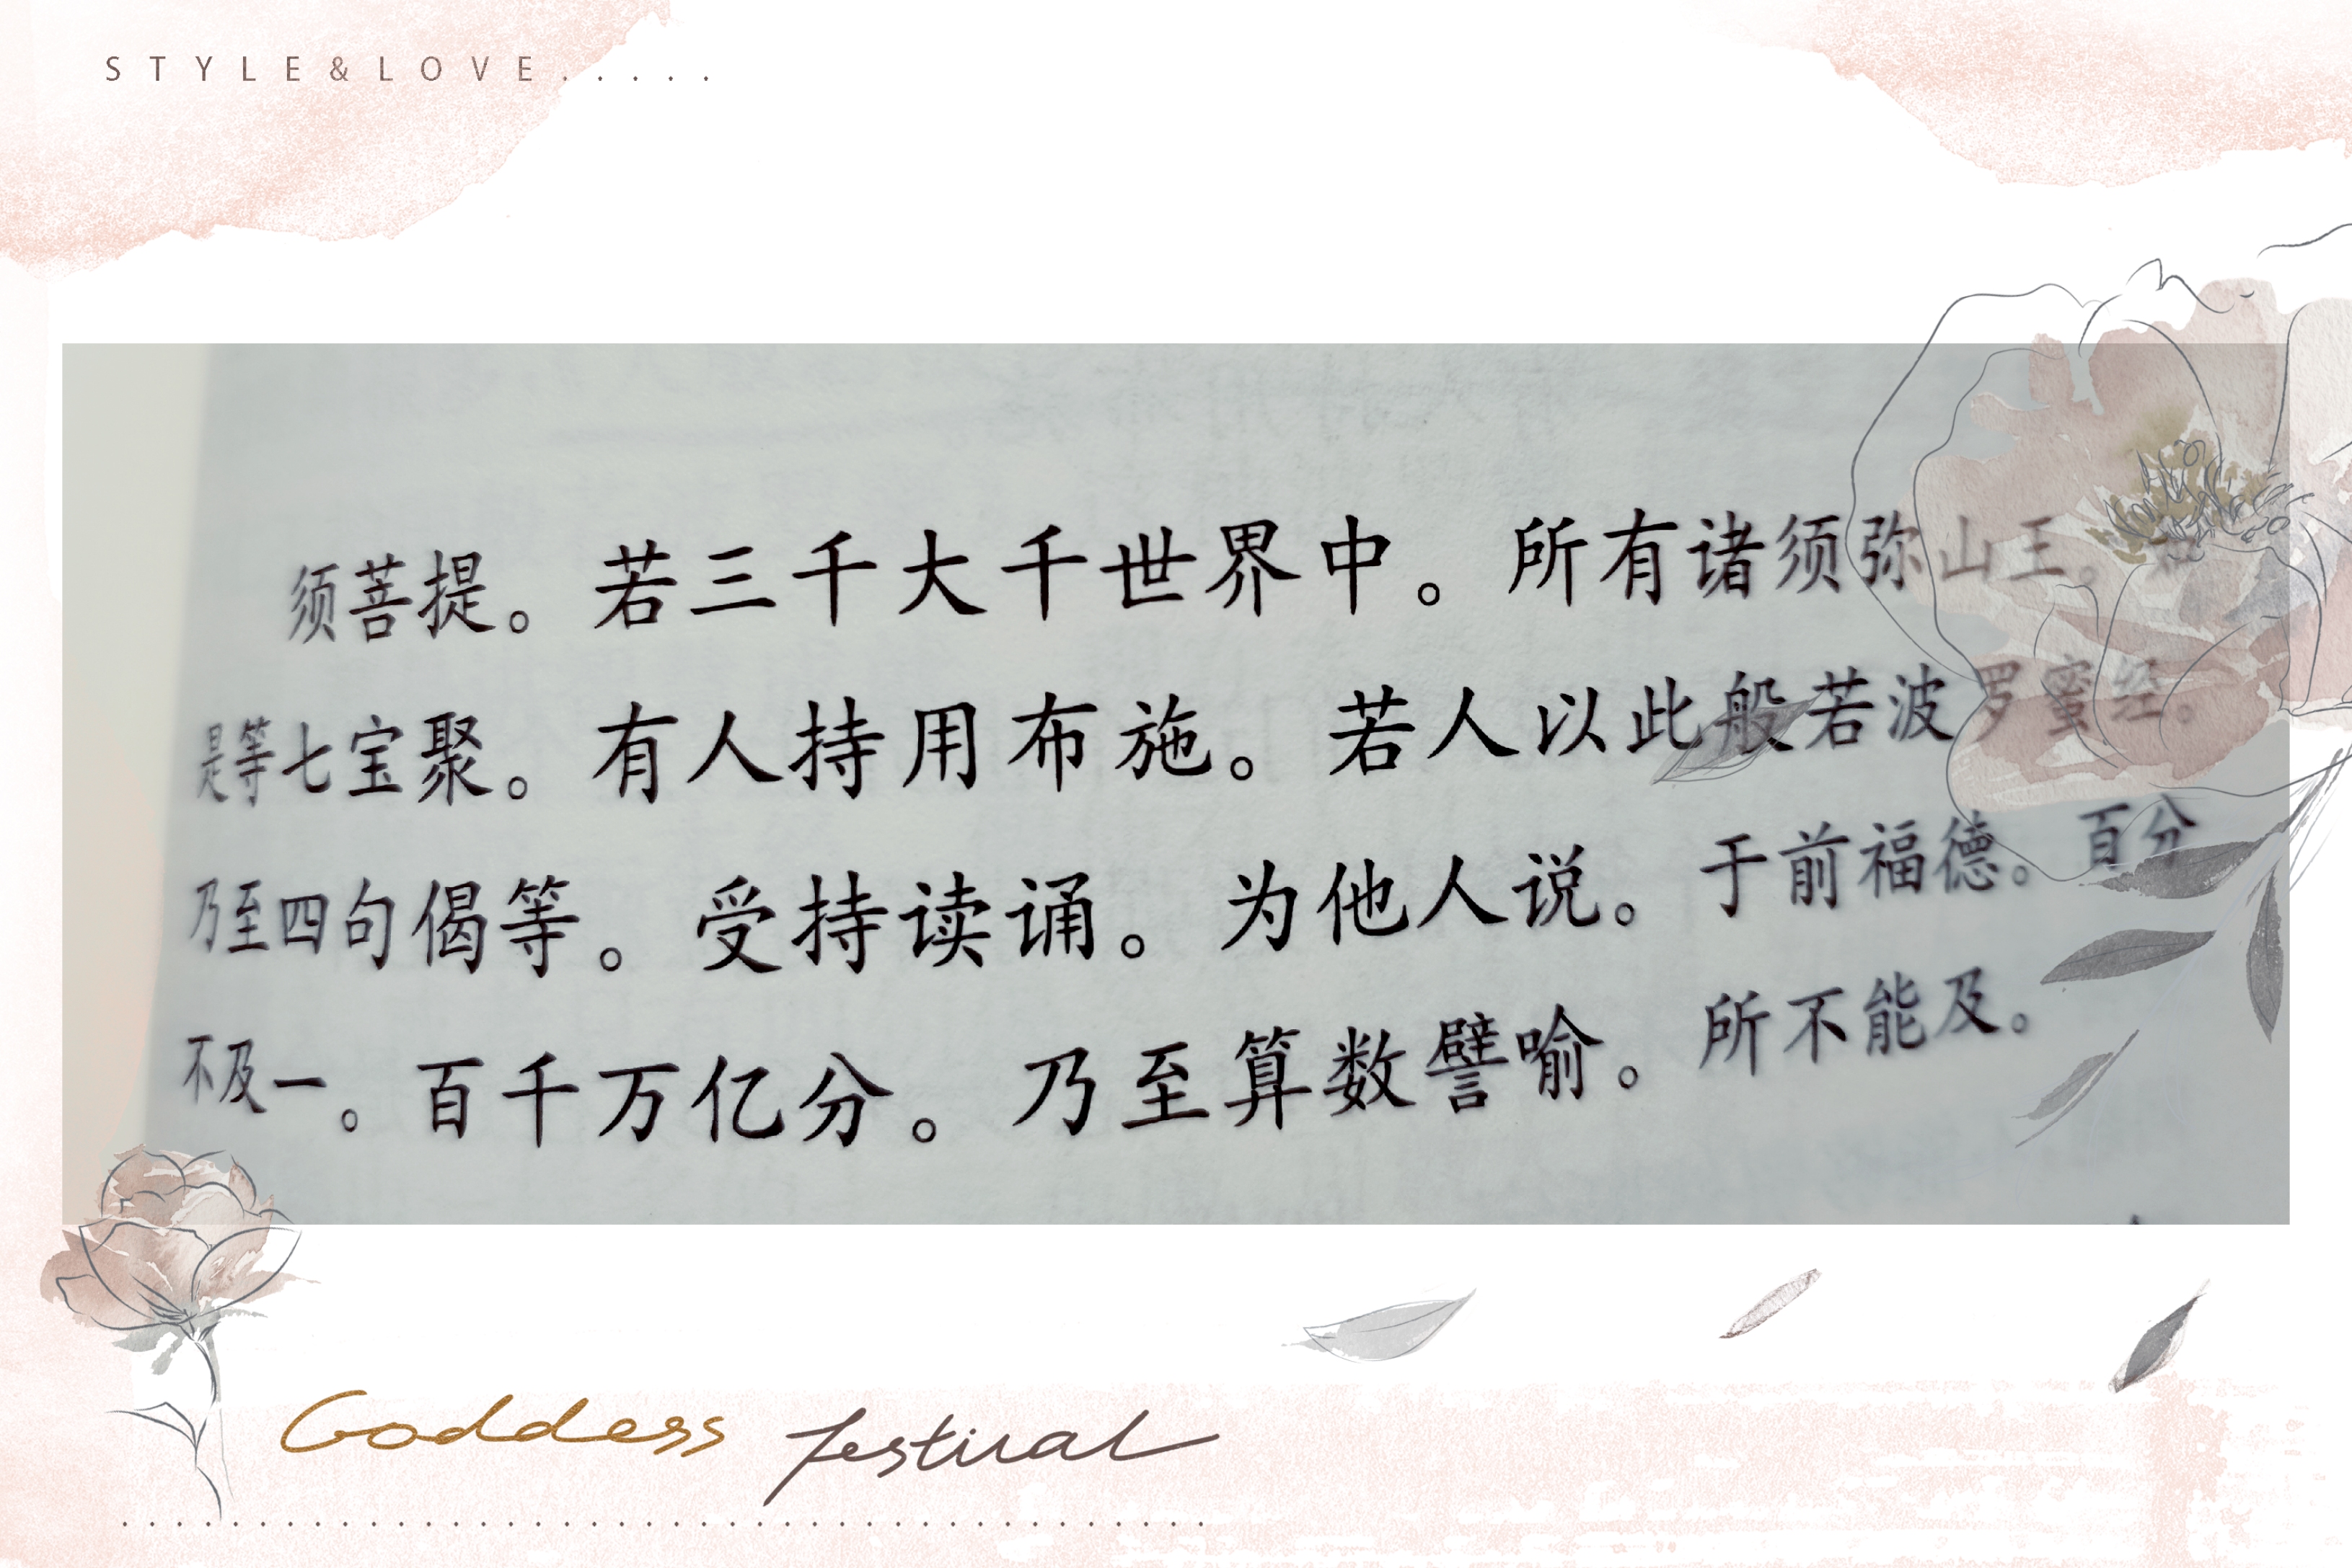 STYLE&LOVE.....
须菩提。若三千大千世界中。所有诸须弥山王。
是等七宝聚。有人持用布施。若人以此般若波罗蜜经。
乃至四句偈等。受持读诵。为他人说。于前福德。百分
不及一。百千万亿分。乃至算数譬喻。所不能及。
Goddess festival